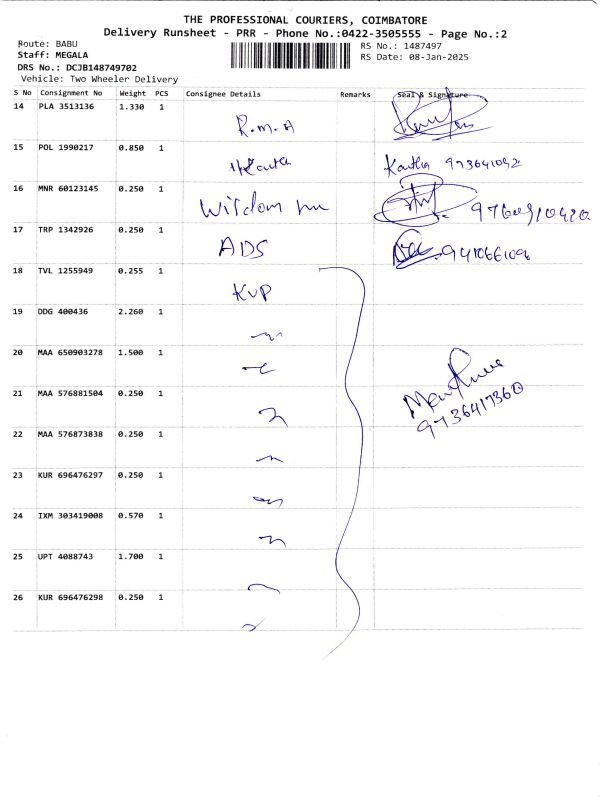 THE PROFESSIONAL COURIERS, COIMBATORE
Delivery Runsheet - PRR - Phone No.:0422-3505555 - Page No.:2
Route: BABU
Staff: MEGALA
DRS No.: DCJB148749702
Vehicle: Two Wheeler Delivery
RS No.: 1487497
RS Date: 08-Jan-2025
S No Consignment No Weight PCS Consignee Details Remarks Seal & Signature
14 PLA 3513136 1.330 1 R.m.A
15 POL 1990217 0.850 1
16 MNR 60123145 0.250 1 Wisdom
17 TRP 1342926 0.250 1 ADS
18 TVL 1255949 0.255 1 KVP
19 DDG 400436 2.260 1
20 MAA 650903278 1.500 1
21 MAA 576881504 0.250 1
9736417360
22 MAA 576873838 0.250 1
23 KUR 696476297 0.250 1
24 IXM 303419008 0.570 1
25 UPT 4088743 1.700 1
26 KUR 696476298 0.250 1